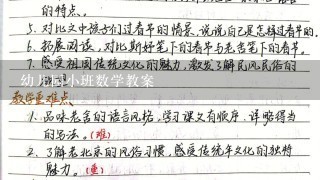 的特点。
5. 对比文中孩子们过春节的情景,说说自己是怎样过春节的。
6. 拓展阅读,对比斯妤笔下的春节与老舍笔下的春节。
7. 感受祖国传统文化的魅力,激发了解民风民俗的
幼儿园小班数学教案
教学重难点
1. 品味老舍的语言风格,学习课文有顺序、详略得当
的写法。(难)
2. 了解老北京的风俗习惯,感受传统年文化的独特
魅力。(重)